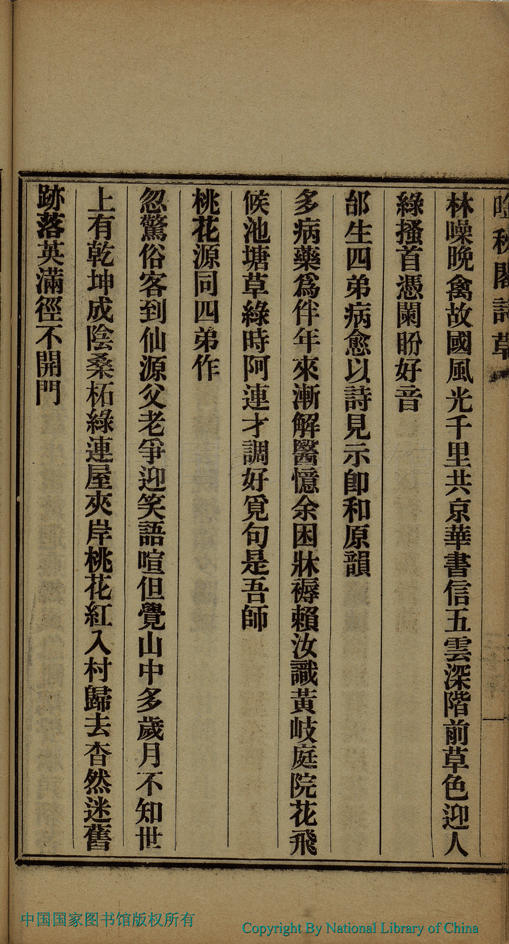 秋閣詩草
林噪晚禽故國風光千里共京華書信五雲深階前草色迎人
綠搔首憑闌盼好音
邰生四弟病愈以詩見示卽和原韻
多病藥爲伴年來漸解醫憶余困牀褥賴汝識黃岐庭院花飛
候池塘草綠時阿連才調好覓句是吾師
桃花源同四弟作
忽驚俗客到仙源父老爭迎笑語喧但覺山中多歲月不知世
上有乾坤成陰桑柘綠連屋夾岸桃花紅入村歸去杳然迷舊
跡落英滿徑不開門
中国国家图书馆版权所有
Copyright By National Library of China